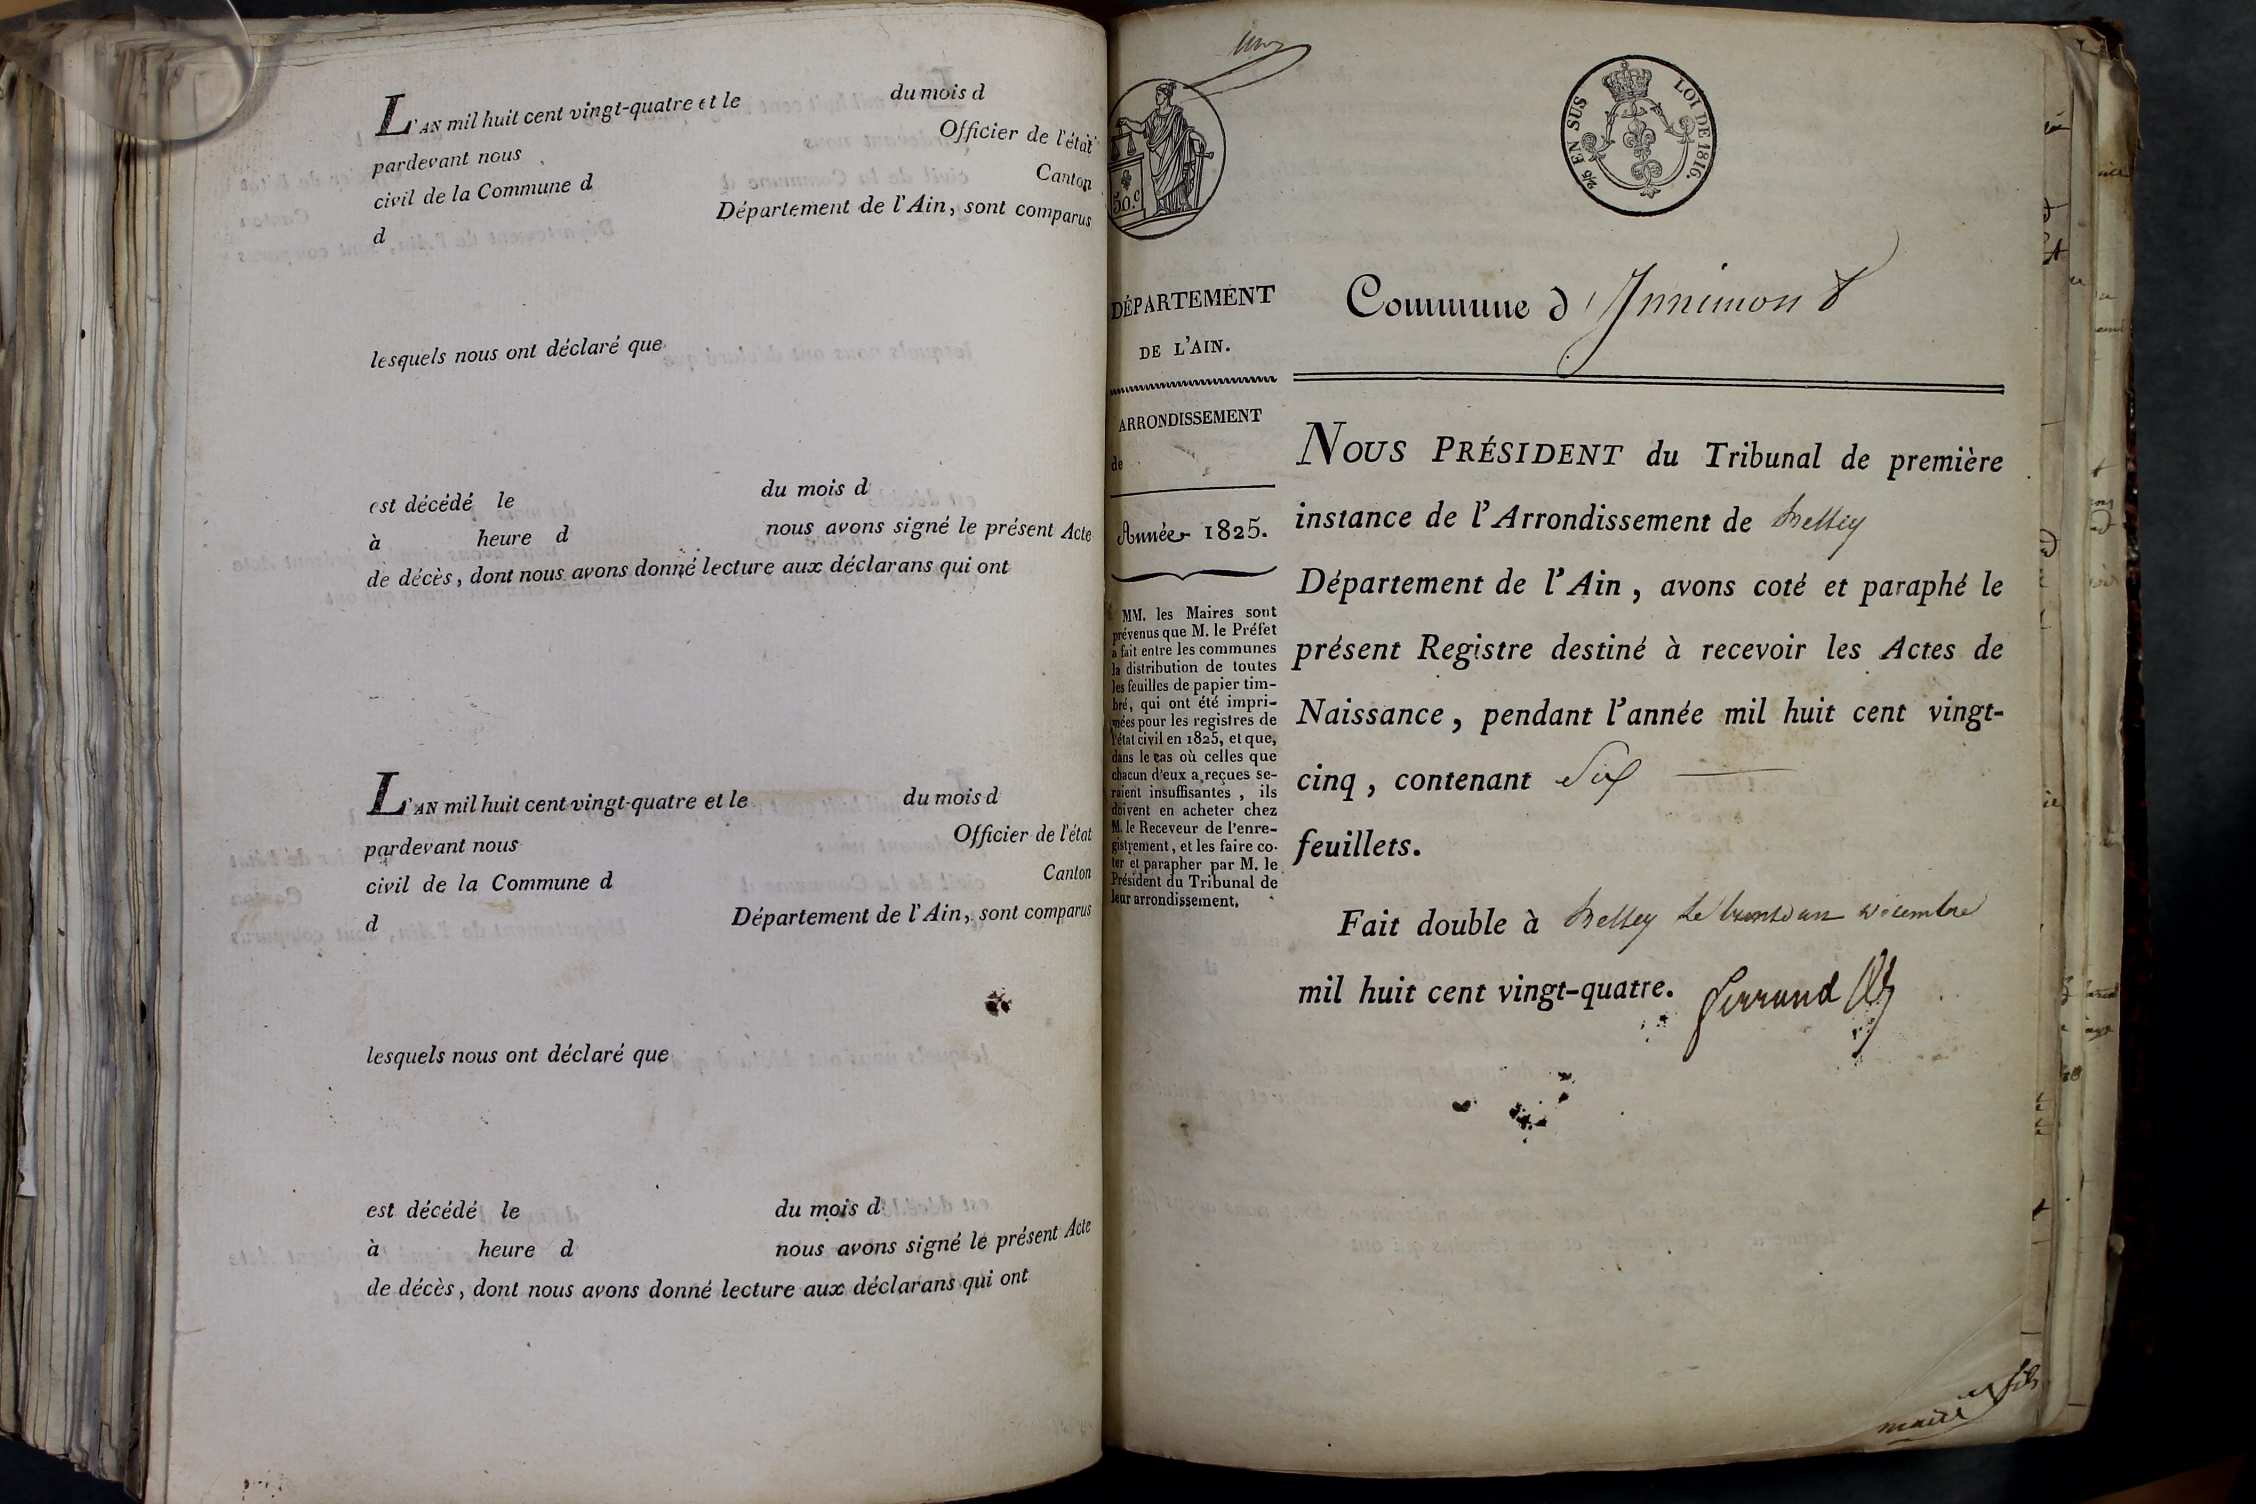 L'AN mil huit cent vingt-quatre et le du mois d
pardevant nous Officier de l'état
civil de la Commune d Canton
d Département de l'Ain, sont comparus
lesquels nous ont déclaré que
est décédé le du mois d
à heure d nous avons signé le présent Acte
de décès, dont nous avons donné lecture aux déclarans qui ont
L'AN mil huit cent vingt-quatre et le du mois d
pardevant nous Officier de l'état
civil de la Commune d Canton
d Département de l'Ain, sont comparus
lesquels nous ont déclaré que
est décédé le du mois d
à heure d nous avons signé le présent Acte
de décès, dont nous avons donné lecture aux déclarans qui ont
50.c
2/5 EN SUS
LOI DE 1816.
DÉPARTEMENT
DE L'AIN.
ARRONDISSEMENT
de
Année 1825.
MM. les Maires sont
prévenus que M. le Préfet
a fait entre les communes
la distribution de toutes
les feuilles de papier tim-
bré, qui ont été impri-
mées pour les registres de
l'état civil en 1825, et que,
dans le cas où celles que
chacun d'eux a reçues se-
raient insuffisantes, ils
doivent en acheter chez
M. le Receveur de l'enre-
gistrement, et les faire co-
ter et parapher par M. le
Président du Tribunal de
leur arrondissement.
Commune d'Innimont
NOUS PRÉSIDENT du Tribunal de première
instance de l'Arrondissement de Belley
Département de l'Ain, avons coté et paraphé le
présent Registre destiné à recevoir les Actes de
Naissance, pendant l'année mil huit cent vingt-
cinq, contenant Six
feuillets.
Fait double à Belley le trente un décembre
mil huit cent vingt-quatre. ferrand
maire